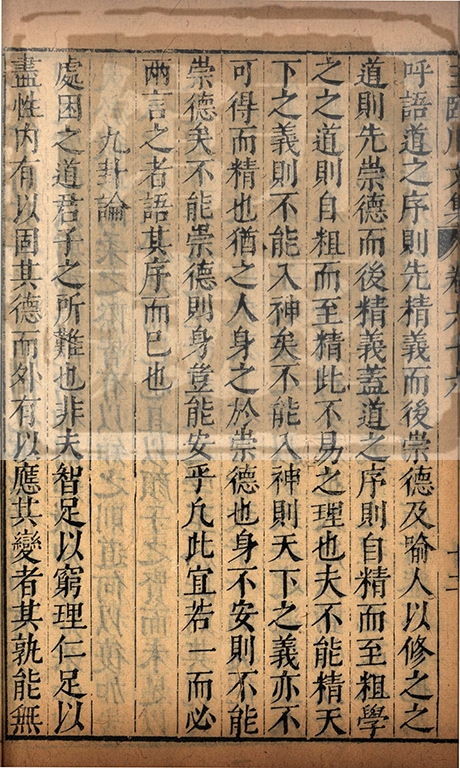 王臨川文集 卷六十六 十二
呼語道之序則先精義而後崇德及喻人以修之之
道則先崇德而後精義蓋道之序則自精而至粗學
之之道則自粗而至精此不易之理也夫不能精天
下之義則不能入神矣不能入神則天下之義亦不
可得而精也猶之人身之於崇德也身不安則不能
崇德矣不能崇德則身豈能安乎凡此宜若一而必
兩言之者語其序而已也
九卦論
處困之道君子之所難也非夫智足以窮理仁足以
盡性內有以固其德而外有以應其變者其孰能無